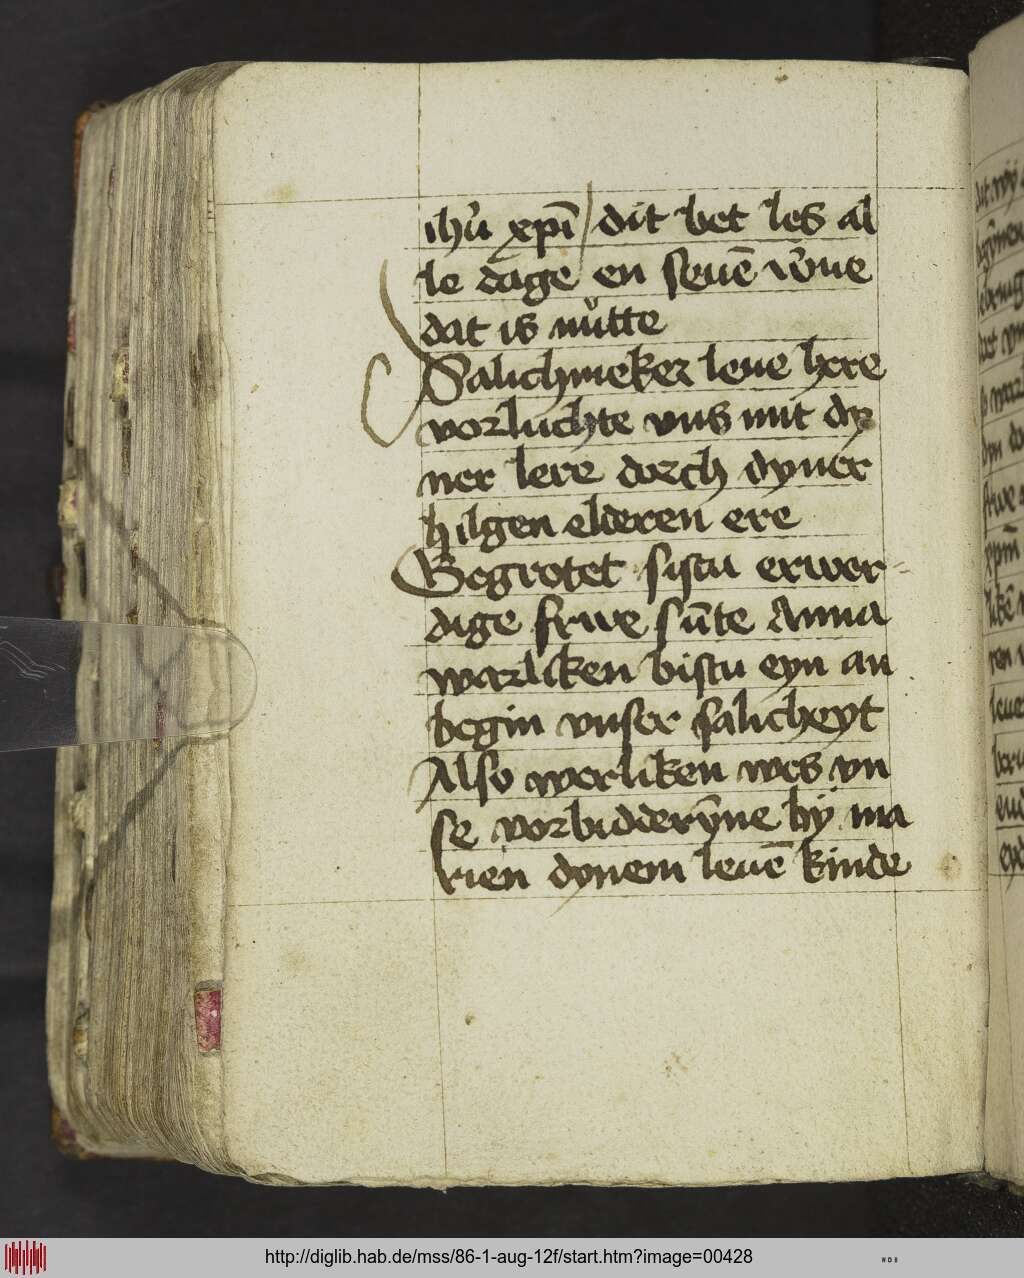 ihũ xpī / dit bet les al
le dage en seuē wͦne
dat is nůtte
Salichmeker leue here
vorluchte vns mit dy
ner lere dorch dyner
hilgen elderen ere
Gegrotet sistu erwer=
dige frwe sūte Anna
warliken bistu eyn an
begin vnser salicheyt
Also werliken wes vn
se vorbidderȳne by ma
rien dynem leuē kinde
http://diglib.hab.de/mss/86-1-aug-12f/start.htm?image=00428